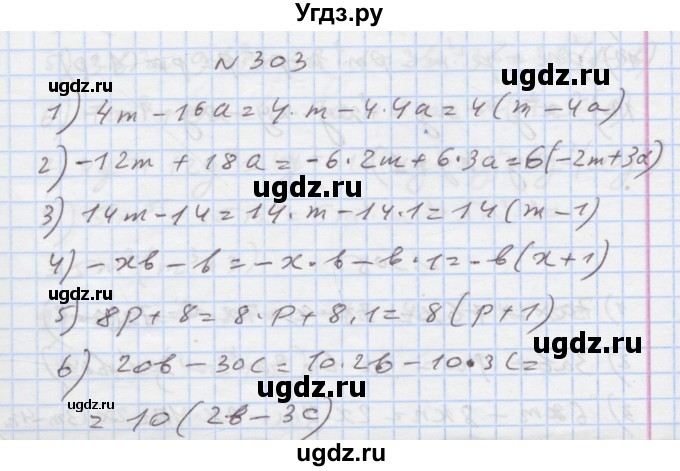 Угдз.ру
N 303
ugdz.ru ugdz.ru
1) 4m - 16a = 4·m - 4·4a = 4(m - 4a)
ugdz.ru
2) -12m + 18a = -6·2m + 6·3a = 6(-2m+3a)
ugdz.ru
3) 14m - 14 = 14·m - 14·1 = 14(m - 1)
ugdz.ru ugdz.ru
4) - xb - b = -x·b - b·1 = -b(x+1)
ugdz.ru
5) 8p + 8 = 8·p + 8·1 = 8(p+1)
ugdz.ru ugdz.ru
6) 20b - 30c = 10·2b - 10·3c =
ugdz.ru ugdz.ru
= 10(2b - 3c)